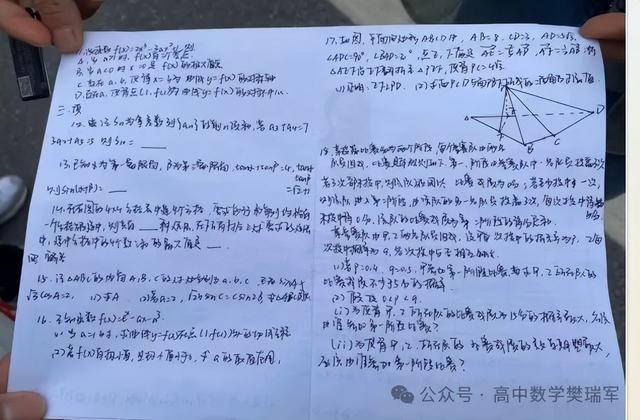 11. 设函数 f(x)=2x³-3ax²+1, 则
A. 当 a>1 时, f(x) 有三个零点
B. 当 a<0 时, x=0 是 f(x) 的极大值点
C. 存在 a, b, 使得 x=b 为曲线 y=f(x) 的对称轴
D. 存在 a, 使得点 (1, f(1)) 为曲线 y=f(x) 的对称中心.
三. 填
12. 记 Sn 为等差数列 {an} 的前 n 项和, 若 a3+a4=7
3a2+a5=5 则 S10=
13. 已知 α 为第一象限角, β 为第三象限角, tanα+tanβ=4, tanα
tanβ
=√2+1
则 sin(α+β)=
14. 在右图的 4×4 方格表中选 4 个方格, 要求每行和每列均恰有
一个方格被选中, 则共有 种选法, 在所有符合上述要求的选法
中, 选中方格中的 4 个数之和的最大值是
四 解答
15. 记 △ABC 的内角 A, B, C 的对边分别为 a, b, c, 已知 sinA+
√3cosA=2, (1) 求 A (2) 若 a=2, √2bsinC=csin2B, 求 △ABC 周长
16. 已知函数 f(x)=eˣ-ax-a³.
(1) 当 a=1 时, 求曲线 y=f(x) 在点 (1, f(1)) 处的切线方程
(2) 若 f(x) 有极小值, 且极小值小于 0, 求 a 的取值范围.
17. 如图, 平面四边形 ABCD 中, AB=8, CD=3, AD=5√3,
∠ADC=90°, ∠BAD=30°, 点 E, F 满足
将
△AEF 沿 EF 对折至 △PEF, 使得 PC=4√3.
(1) 证明: EF⊥PD. (2) 求面 PCD 与面 PBF 所成的二面角的正弦值.
P
E
D
F
B
C
18. 某投篮比赛分为两个阶段, 每个参赛队由两名
队员组成, 比赛具体规则如下: 第一阶段由参赛队中一名队员投篮3次
若3次都未投中, 则该队被淘汰, 比赛成绩为0分; 若至少投中一次,
则该队进入第二阶段, 由该队的另一名队员投篮3次, 每次投中得5分
未投中得0分, 该队的比赛成绩为第二阶段的得分总和.
某参赛队由甲, 乙两名队员组成, 设甲每次投中的概率为p, 乙每
次投中概率为q, 各次投中与否相互独立.
(1) 若 p=0.4, q=0.5, 甲参加第一阶段比赛, 求甲, 乙所在队的
比赛成绩不少于5分的概率.
(2) 假设 0<p<q.
(i) 为使得甲, 乙所在队的比赛成绩为15分的概率最大, 应该
由谁参加第一阶段比赛?
(ii) 为使得甲, 乙所在队的比赛成绩的数学期望最大,
应该由谁参加第一阶段比赛?
公众号 · 高中数学樊瑞军